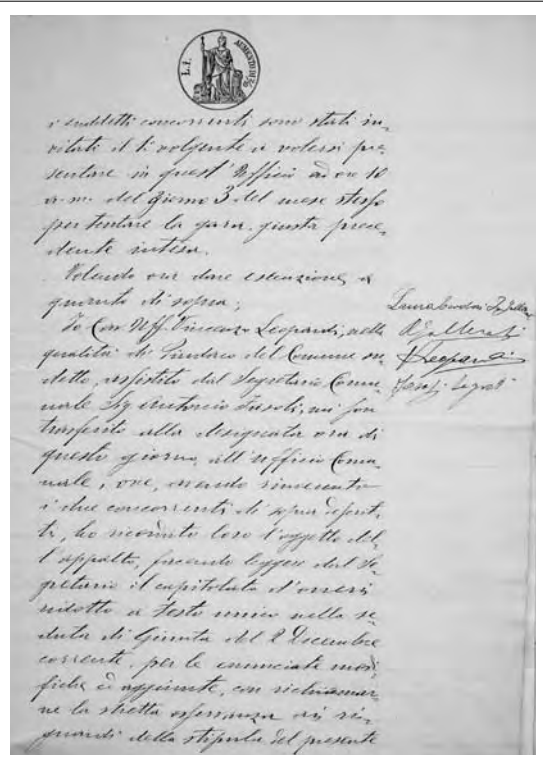 L. I.
AUMENTO DI 2/10
i suddetti concorrenti sono stati in-
vitati il 1i volgente a volersi pre-
sentare in quest'Ufficio ad ore 10
a.m. del giorno 3 del mese stesso
per tentare la gara, giusta prece-
dente intesa.
Volendo ora dare esecuzione a
quanto di sopra;
Io Cav. Uff. Vincenzo Leopardi, nella
qualità di Sindaco del Comune su-
detto, assistito dal Segretario Comu-
nale Sig. Antonio Fasoli, mi son
trasferito alla designata ora di
questo giorno, all'Ufficio Comu-
nale, ove, avendo rinvenuto
i due concorrenti di sopra
ti, ho ricordato loro l'oggetto del-
l'appalto, facendo leggere dal Se-
gretario il capitolato d'oneri
ridotto a testo unico nella se-
duta di Giunta del 2 Decembre
corrente, per le enunciate modi-
fiche ed aggiunte, con richiamar-
ne la stretta osservanza nei ri-
guardi della stipula del presente
Leopardi
Fasoli Segret